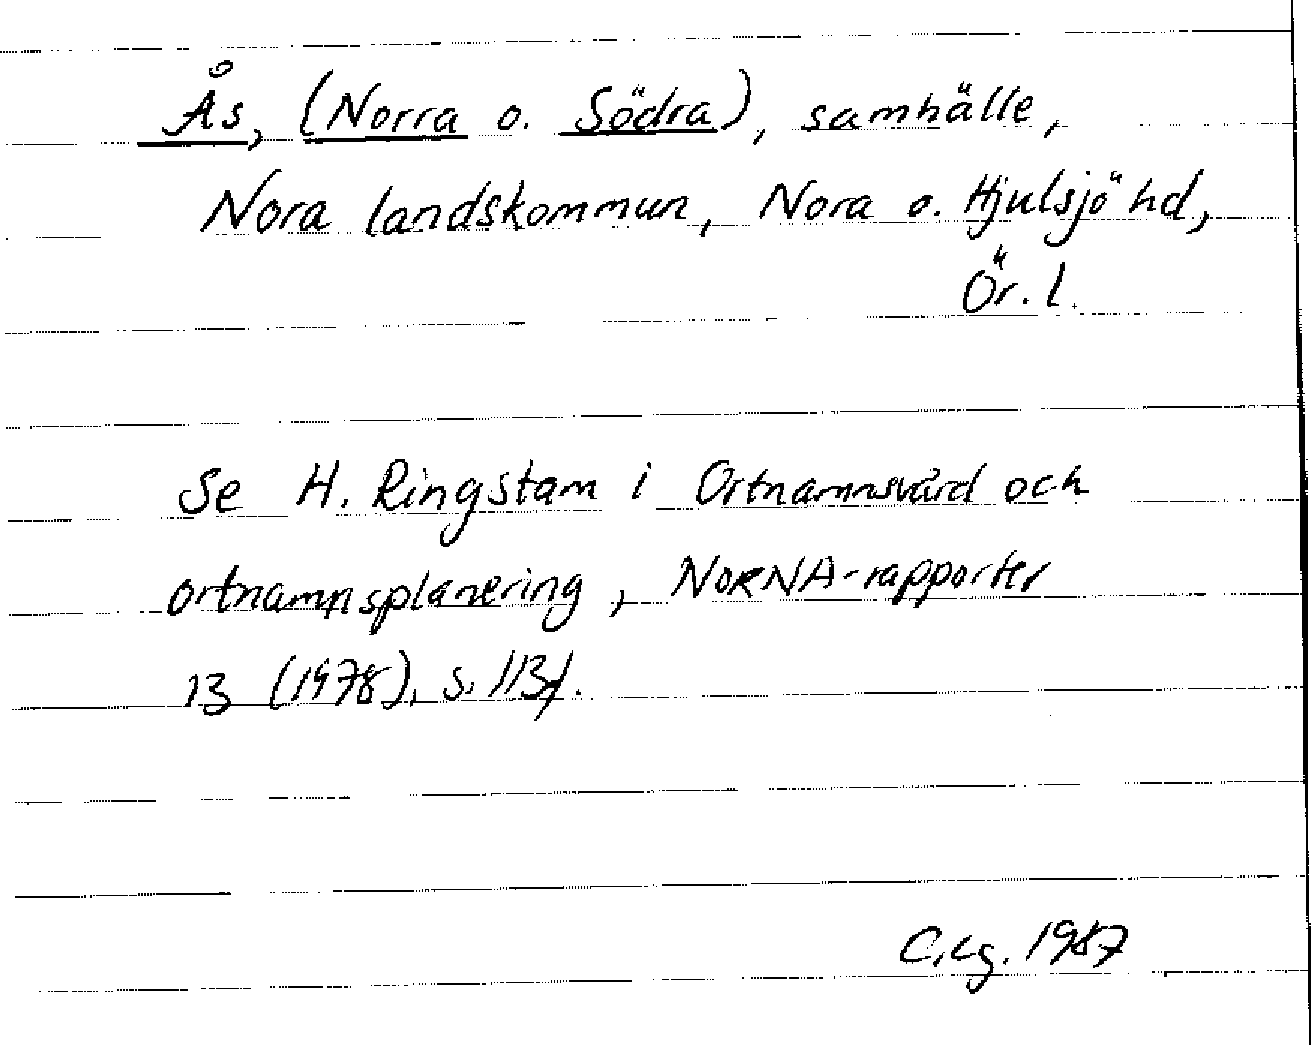 Ås, (Norra o. Södra), samhälle,
Nora landskommun, Nora o. Hjulsjö hd,
Ör. l.
Se H. Ringstam i Ortnamnsvård och
ortnamnsplanering, NORNA-rapporter
13 (1978), s. 113f.
C.Lg. 1987